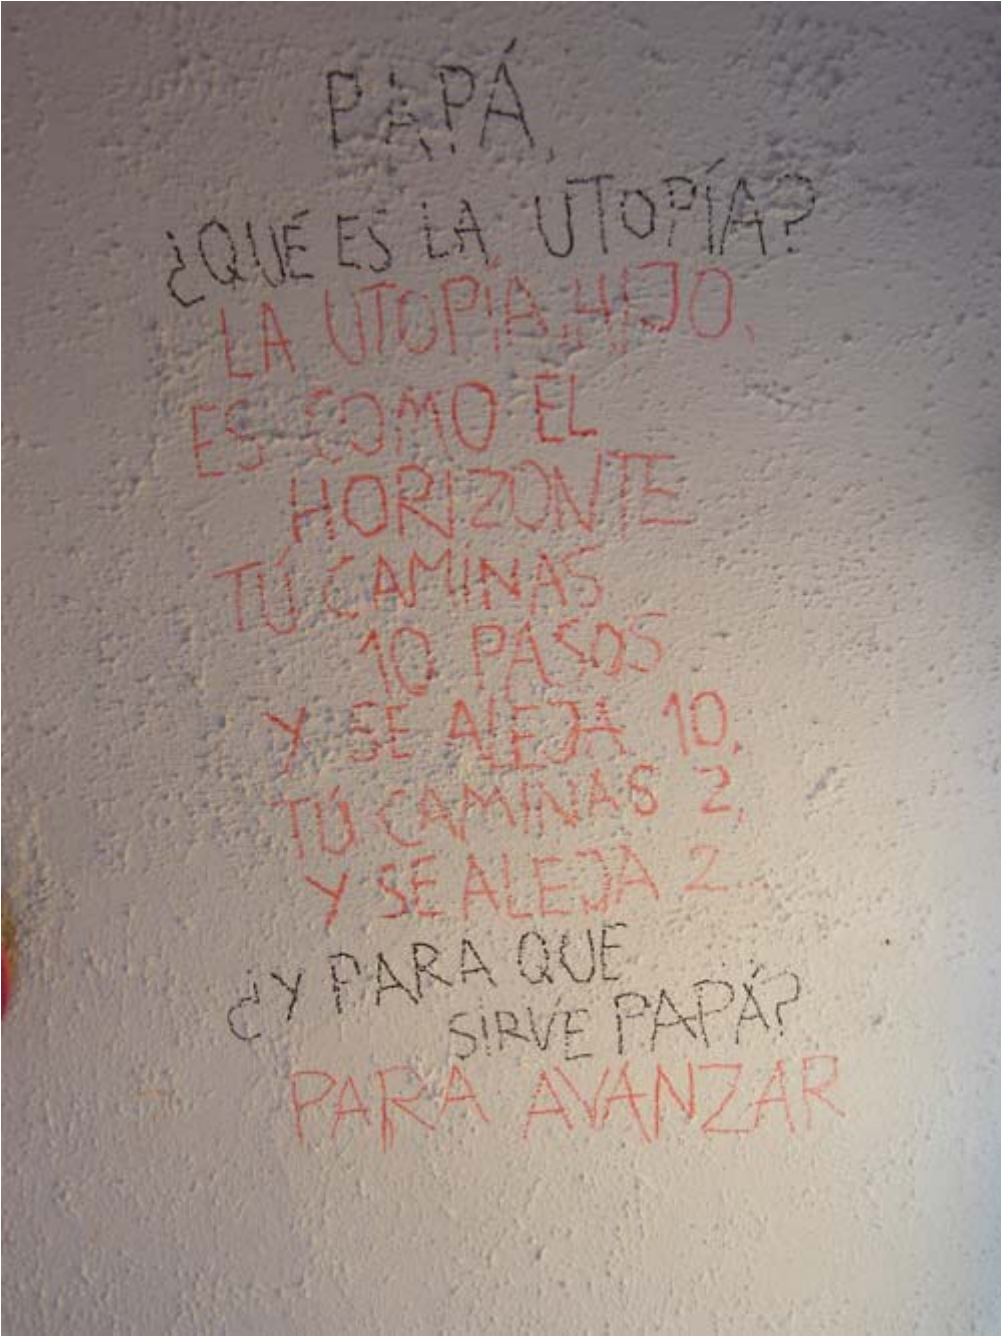 PAPÁ,
¿QUÉ ES LA UTOPÍA?
LA UTOPÍA, HIJO,
ES COMO EL
HORIZONTE
TÚ CAMINAS
10 PASOS
Y SE ALEJA 10,
TÚ CAMINAS 2,
Y SE ALEJA 2..
¿Y PARA QUE
SIRVE PAPÁ?
PARA AVANZAR